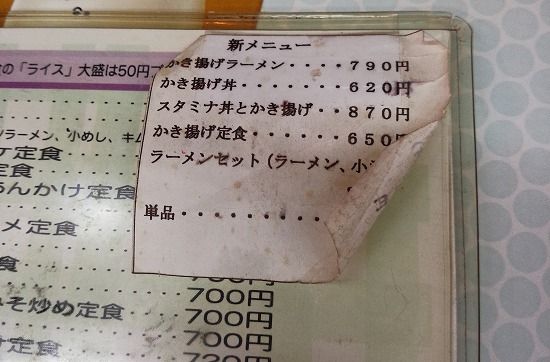 新メニュー
かき揚げラーメン・・・・７９０円
かき揚げ丼・・・・・・・６２０円
スタミナ丼とかき揚げ・・８７０円
かき揚げ定食・・・・・・６５０円
ラーメンセット（ラーメン、小
単品・・・・・・・・・・
の「ライス」大盛は50円
ラーメン、小めし、キム
定食
んかけ定食
メ定食
食
700円
みそ炒め定食
700円
700円
定食
720円